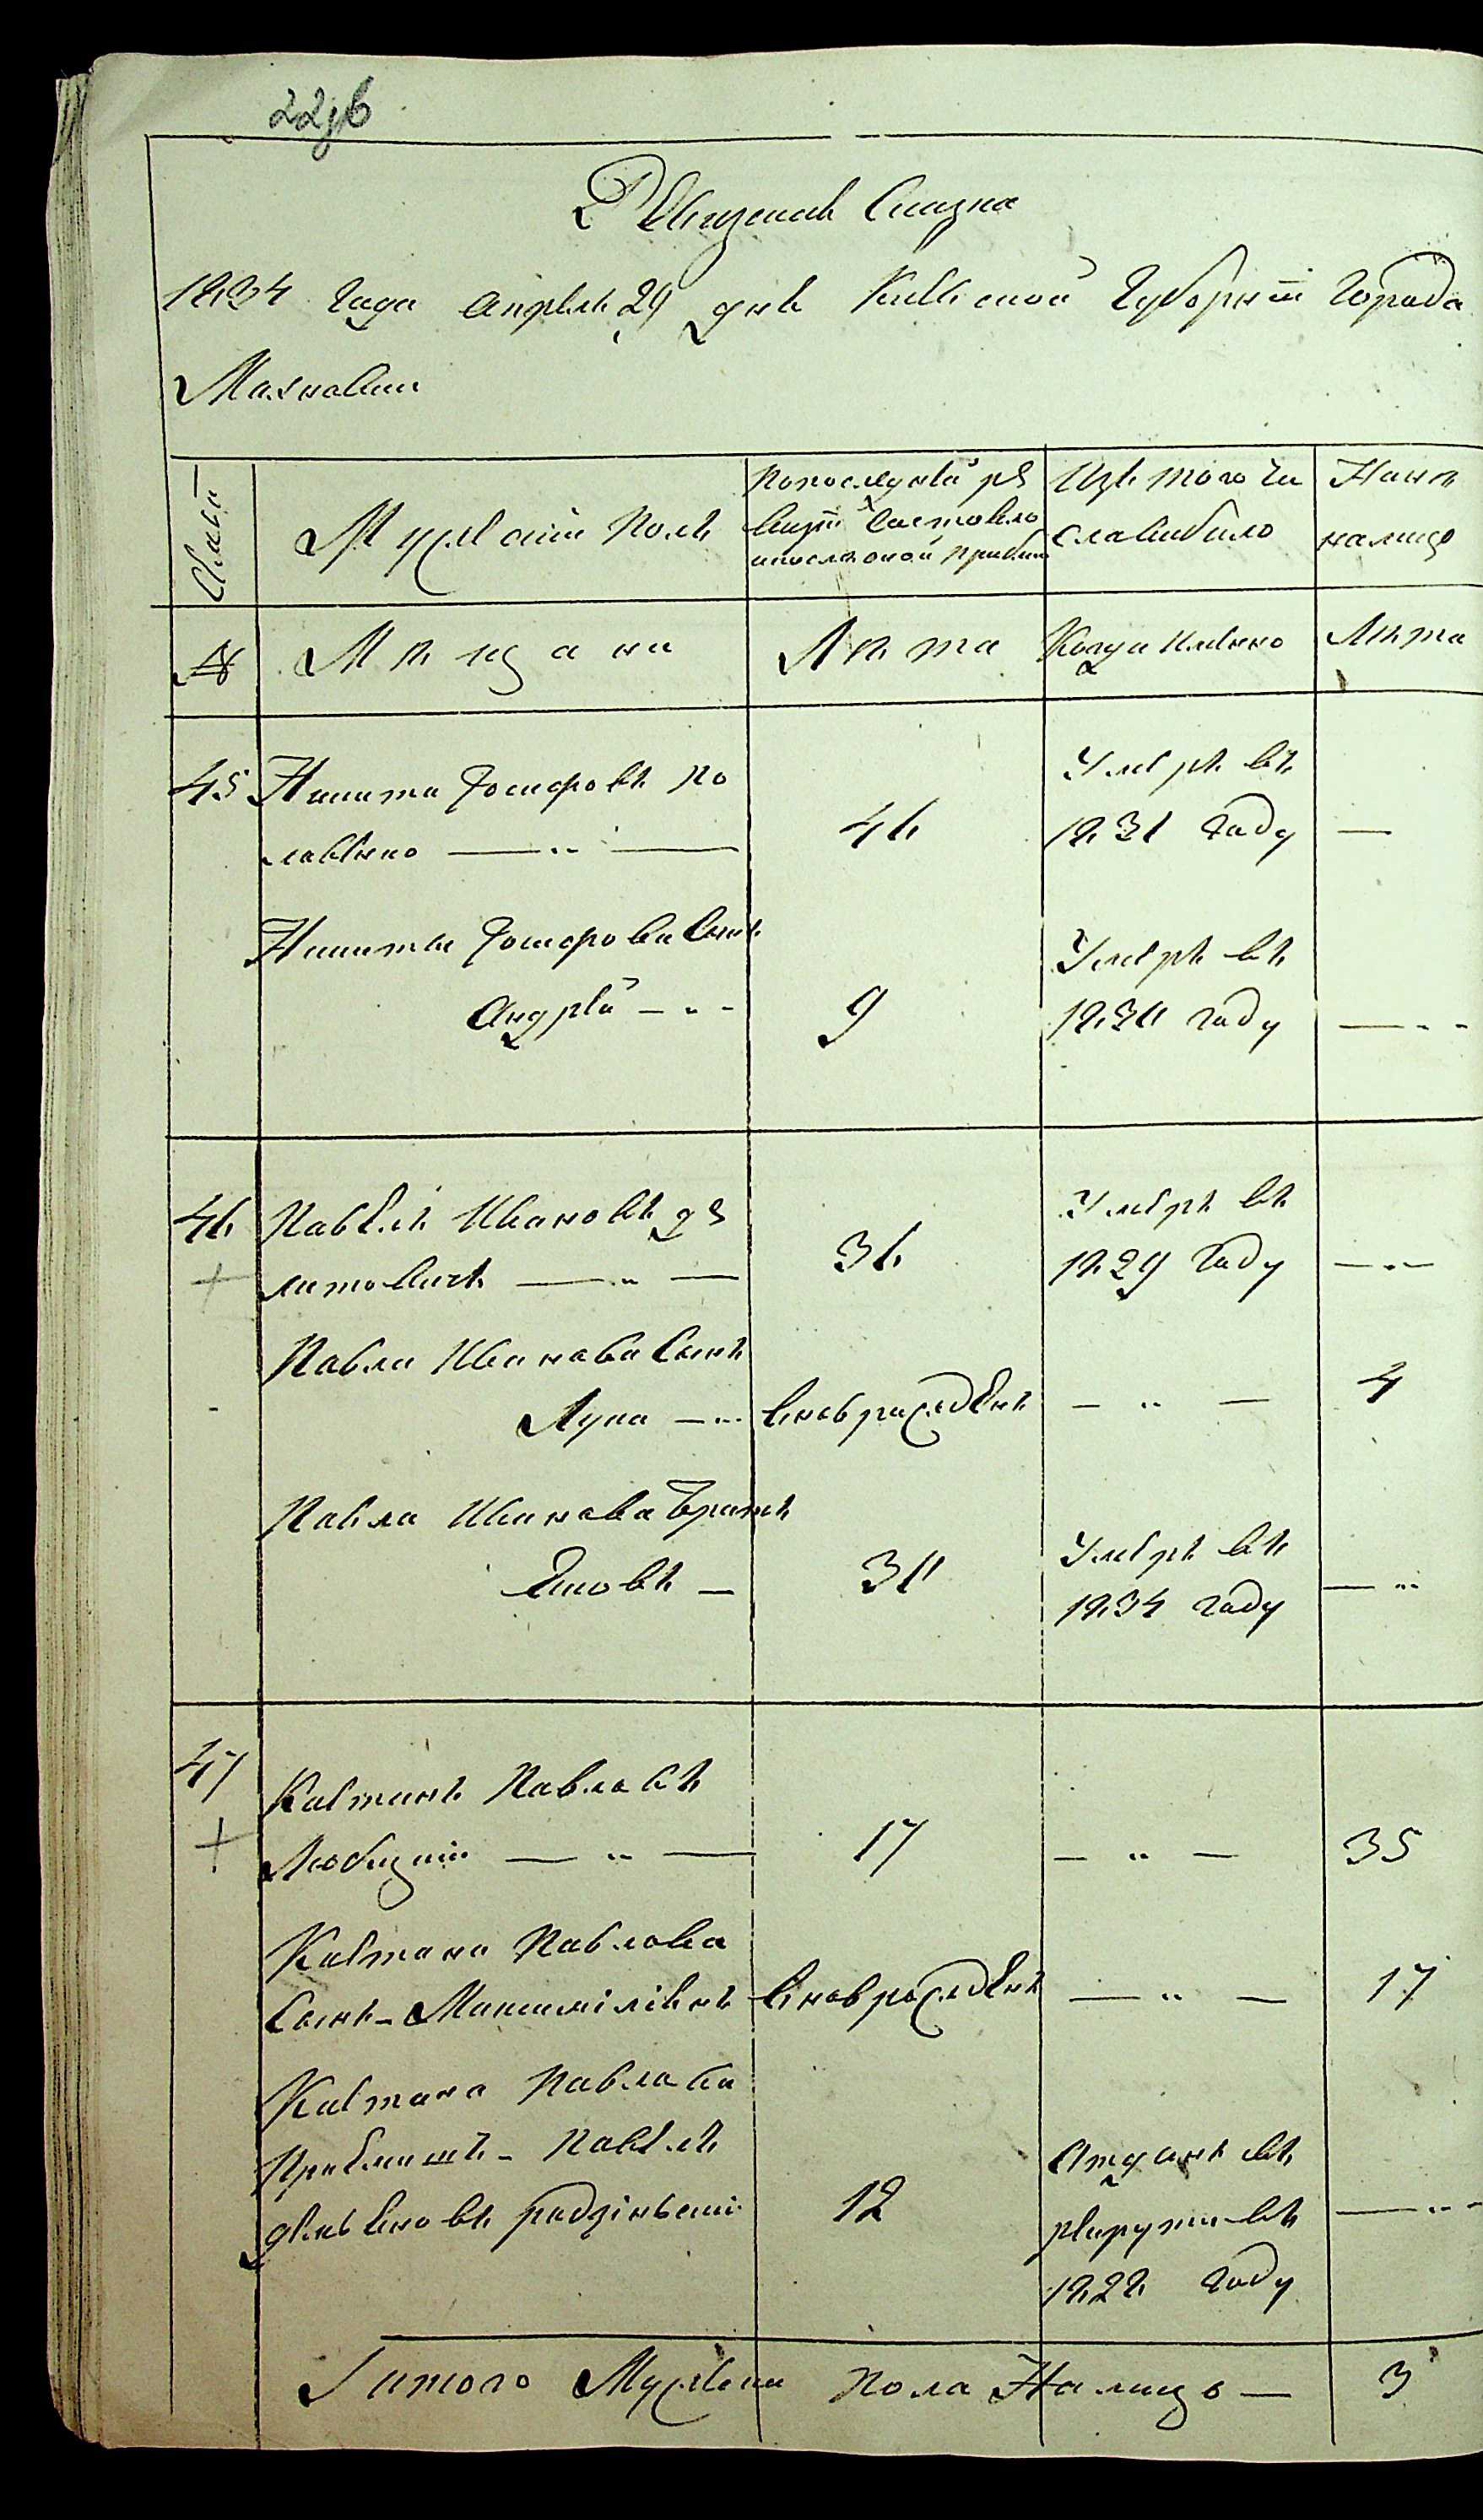 22об
Ревизская Сказка
1834 года апреля 29 дня Киевской Губернїи Города
Махновки
Семьи
Мужеский Полъ
Попоследней ре
визїи состояло
ипослѣ оной прибыло
Изъ того чи
сла выбыло
Нынѣ
налицо
№
Мѣщане
Лѣта
Когда имянно
Лѣта
45
Никита Тодоровъ По
46
Умеръ въ
1831 году
—
Никиты Тодорова Сынъ
Андрей
9
Умеръ въ
1830 году
—
46
Павелъ Ивановъ де
литовичъ
36
Умеръ въ
1829 году
—
Павла Иванова Сынъ
Лука
вновь рожденъ
—
4
Павла Иванова Братъ
Яковъ
30
Умеръ въ
1834 году
—
47
Каетанъ Павловъ
17
—
35
Каетана Павлова
Сынъ Максимилїянъ
вновь рожденъ
—
17
Каетана Павлова
Приемышъ Павелъ
12
Отданъ въ
рекруты въ
1828 году
—
Итого Мужеска Пола Налицо — 3